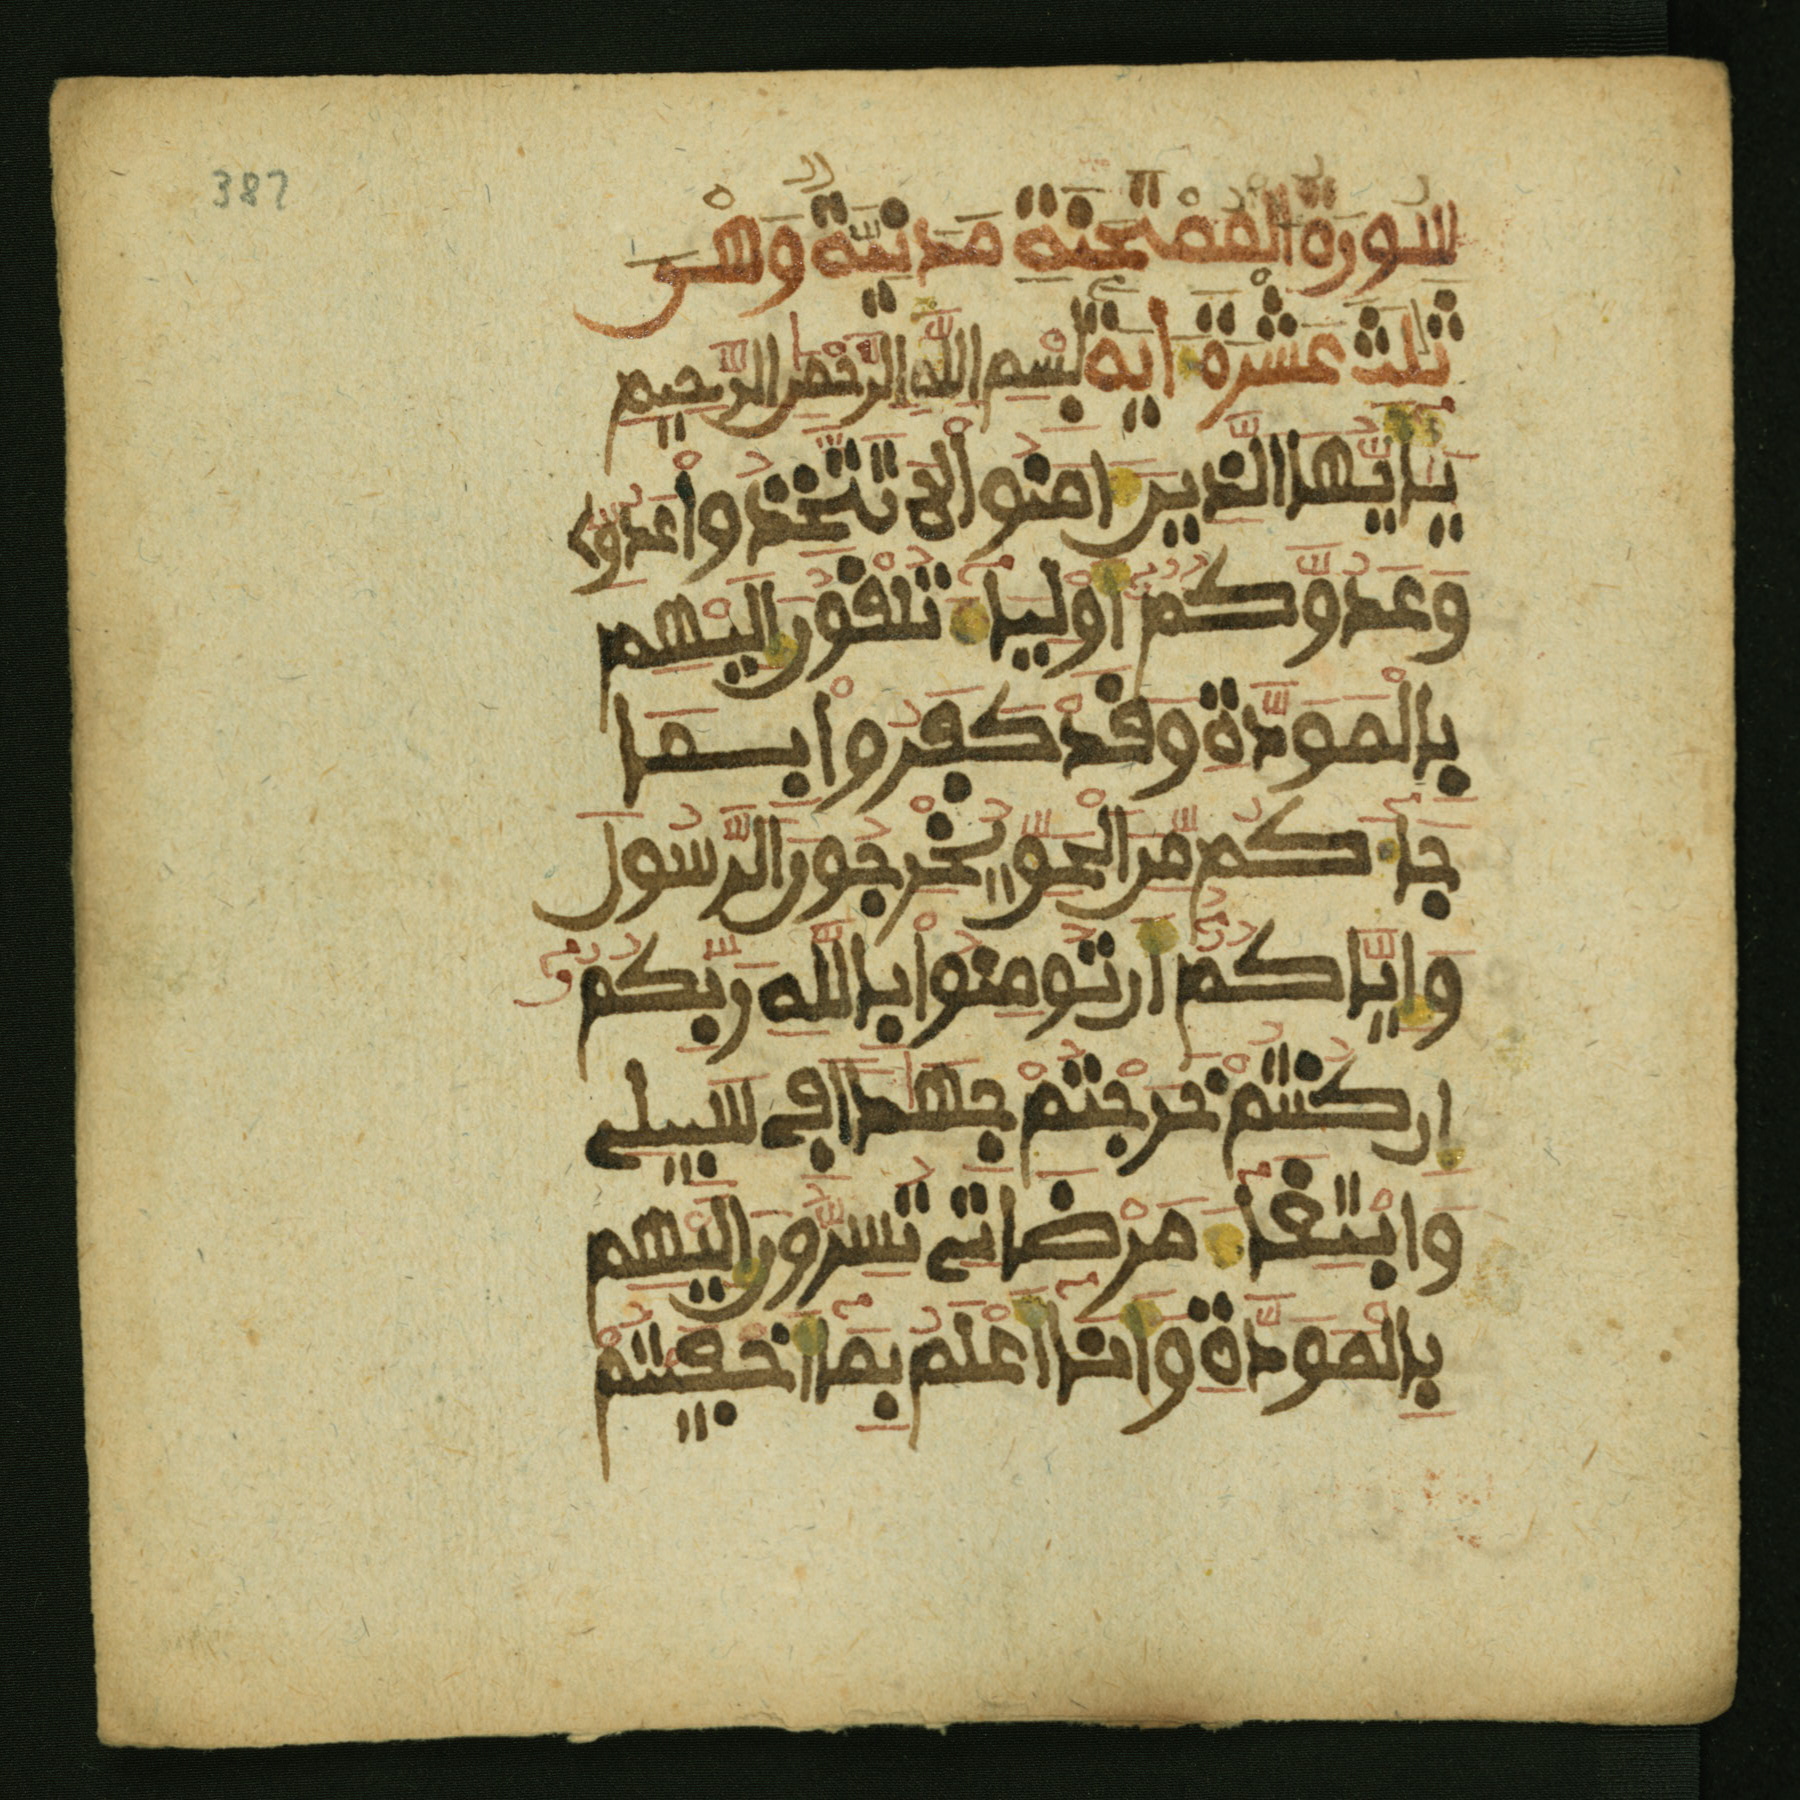 387
سُورَةُ الْمُمْتَحِنَةِ مَدَنِيَّةٌ وَهْىَ
ثَلَثَ عَشْرَةَ ايَةً بِسْمِ اللَّهِ الرَّحْمَٰنِ الرَّحِيمِ
يَاأَيُّهَا الَّذِينَ ءَامَنُوا لَا تَتَّخِذُوا عَدُوِّے
وَعَدُوَّكُمُ أَوْلِيَاءَ تُلْقُونَ إِلَيْهِم
بِالْمَوَدَّةِ وَقَدْ كَفَرُوا بِمَا
جَاءَكُم مِّنَ الْحَقِّ يُخْرِجُونَ الرَّسُولَ
وَإِيَّاكُمُ أَن تُومِنُوا بِاللَّهِ رَبِّكُمُ
إِن كُنتُمْ خَرَجْتُمْ جِهَٰدًا فِے سَبِيلِے
وَابْتِغَاءَ مَرْضَاتِے تُسِرُّونَ إِلَيْهِم
بِالْمَوَدَّةِ وَأَنَا أَعْلَمُ بِمَا أَخْفَيْتُمْ